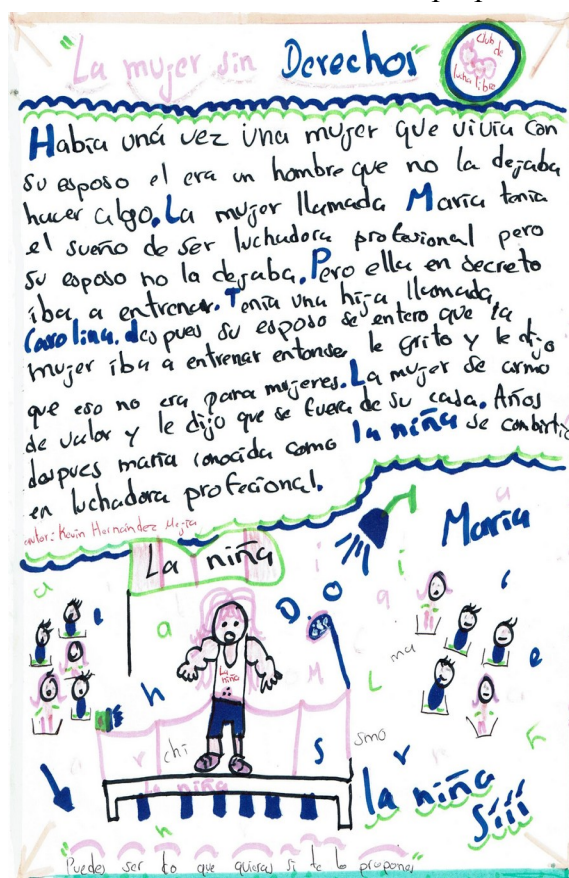 "La mujer sin Derechos"
club de
lucha libre
Había una vez una mujer que vivia con
su esposo el era un hombre que no la dejaba
hacer algo. La mujer llamada Maria tenia
el sueño de ser luchadora profesional pero
su esposo no la dejaba. Pero ella en secreto
iba a entrenar. Tenia una hija llamada
Carolina. despues su esposo se entero que la
mujer iba a entrenar entonses le grito y le dijo
que eso no era para mujeres. La mujer se armo
de valor y le dijo que se fuera de su casa. Años
despues maria conocida como la niña se combirtió
en luchadora profecional.
autor: Kevin Hernández Mejia
La niña
Maria
La niña
la niña
la niña
Siii
"Puedes ser lo que quieras si te lo propones"